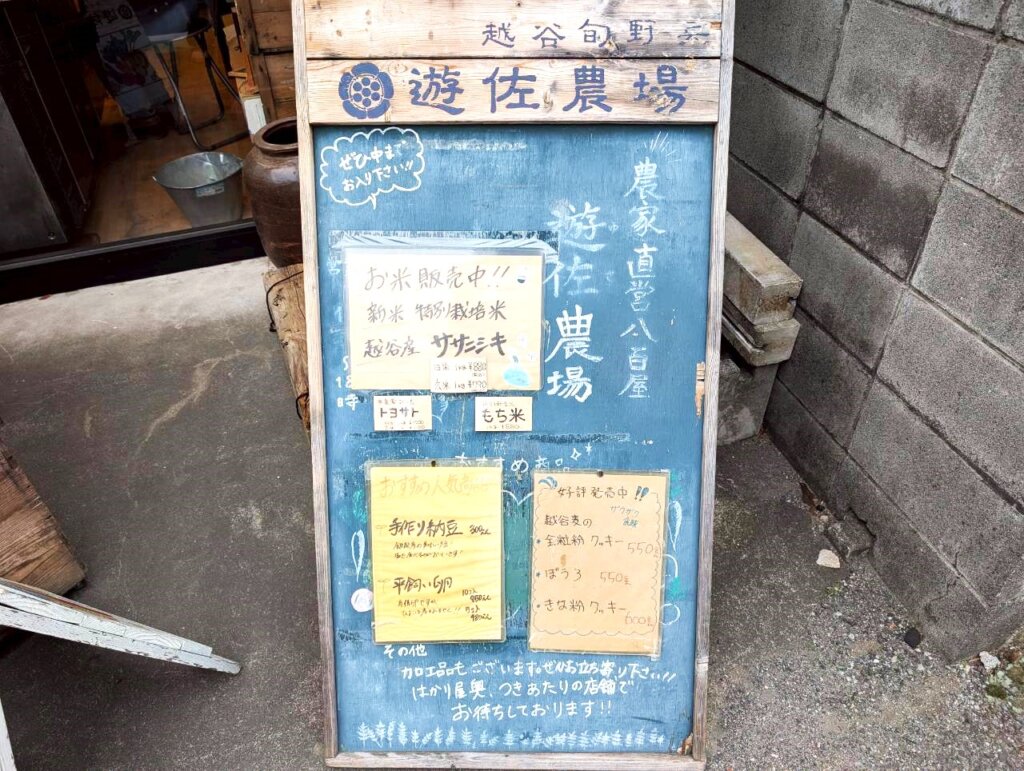 越谷旬野菜
遊佐農場
ぜひ中まで
お入り下さい!!
農家直営八百屋
遊佐農場
お米販売中!!
新米 特別栽培米
越谷産 ササニシキ
1kg ¥880
トヨサト
もち米
おすすめ商品
おすすめ人気商品
手作り納豆 300えん
平飼い卵
10コ入
好評発売中!!
ザクザク
越谷麦の
全粒粉 クッキー 550円
ぼうろ 550円
きな粉 クッキー 600円
その他
加工品もございます。ぜひお立ち寄り下さい!!
はかり屋奥、つきあたりの店舗で
お待ちしております!!